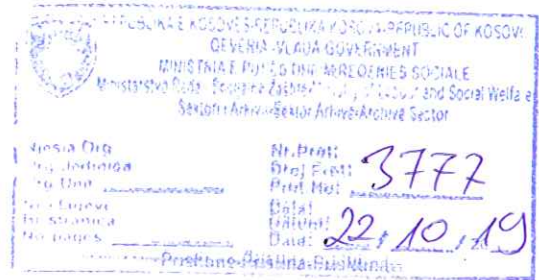 REPUBLIKA E KOSOVËS-REPUBLIKA KOSOVA-REPUBLIC OF KOSOVO
QEVERIA-VLADA GOVERNMENT
MINISTRIA E PUNËS DHE MIRËQENIES SOCIALE
Ministarstvo Rada Socijalne Zaštite Ministry of Labour and Social Welfare
Sektori i Arkivit-Sektor Arhive-Archive Sector
Njësia Org
Org. Jedinica
Org Unit
Nr.Prot:
Broj Prot:
Prot.No: 3777
Nr. i Fajeve
Br. stranica
No pages
Data:
Datum:
Date: 22, 10, 19
Prishtinë-Priština-Prishtina